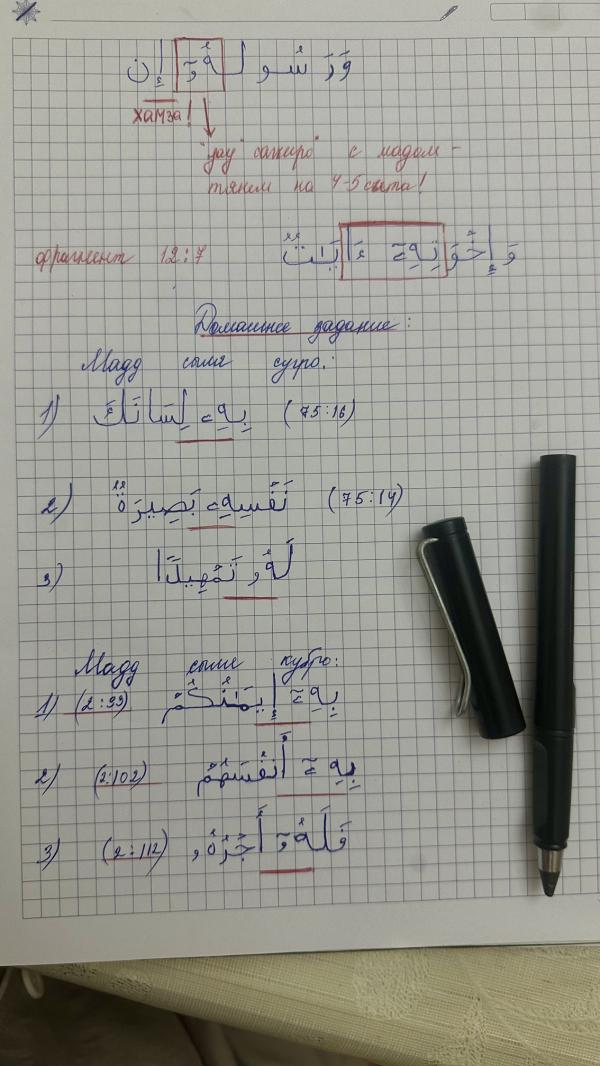 وَرَسُولُهُۥٓ إِن
хамза!
"уау" сагиро" с мадом -
тянем на 4-5 счета!
фрагмент 12:7
وَإِخْوَتِهِۦٓ ءَايَٰتٌ
Домашнее задание:
Мадд сыля сугро:
1) بِهِۦ لِسَانَكَ (75:16)
2) نَفْسِهِۦ بَصِيرَةٌ (75:14)
3) لَهُۥ تَمْهِيدًا
Мадд сыля кубро:
1) (2:93) بِهِۦٓ إِيمَٰنُكُمْ
2) (2:102) بِهِۦٓ أَنفُسَهُمْ
3) (2:112) فَلَهُۥٓ أَجْرُهُۥ